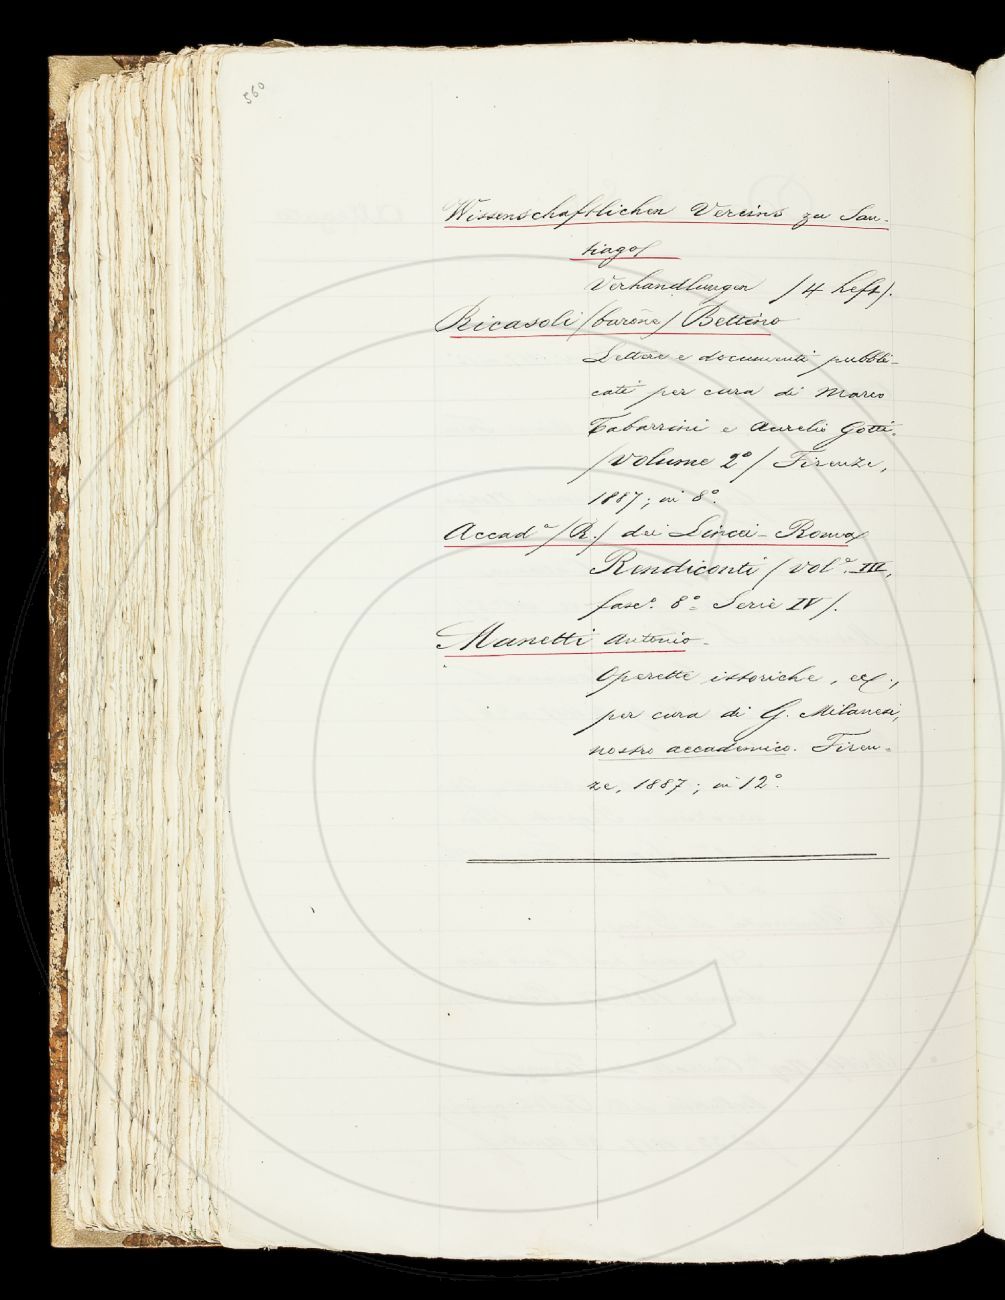 560
Wissenschaftlichen Vereins zu San-
tiago/
Verhandlungen /4 heft/.
Ricasoli /barone/ Bettino
Lettere e documenti pubbli-
cati per cura di Marco
Tabarrini e Aurelio Gotti.
/Volume 2°/ Firenze,
1887; in 8°.
Accad.a /R./ dei Lincei - Roma/
Rendiconti /vol.e III,
fasc.° 8° Serie IV/.
Manetti Antonio -
Operette istoriche, ec.,
per cura di G. Milanesi,
nostro accademico. Firen-
ze, 1887; in 12°.